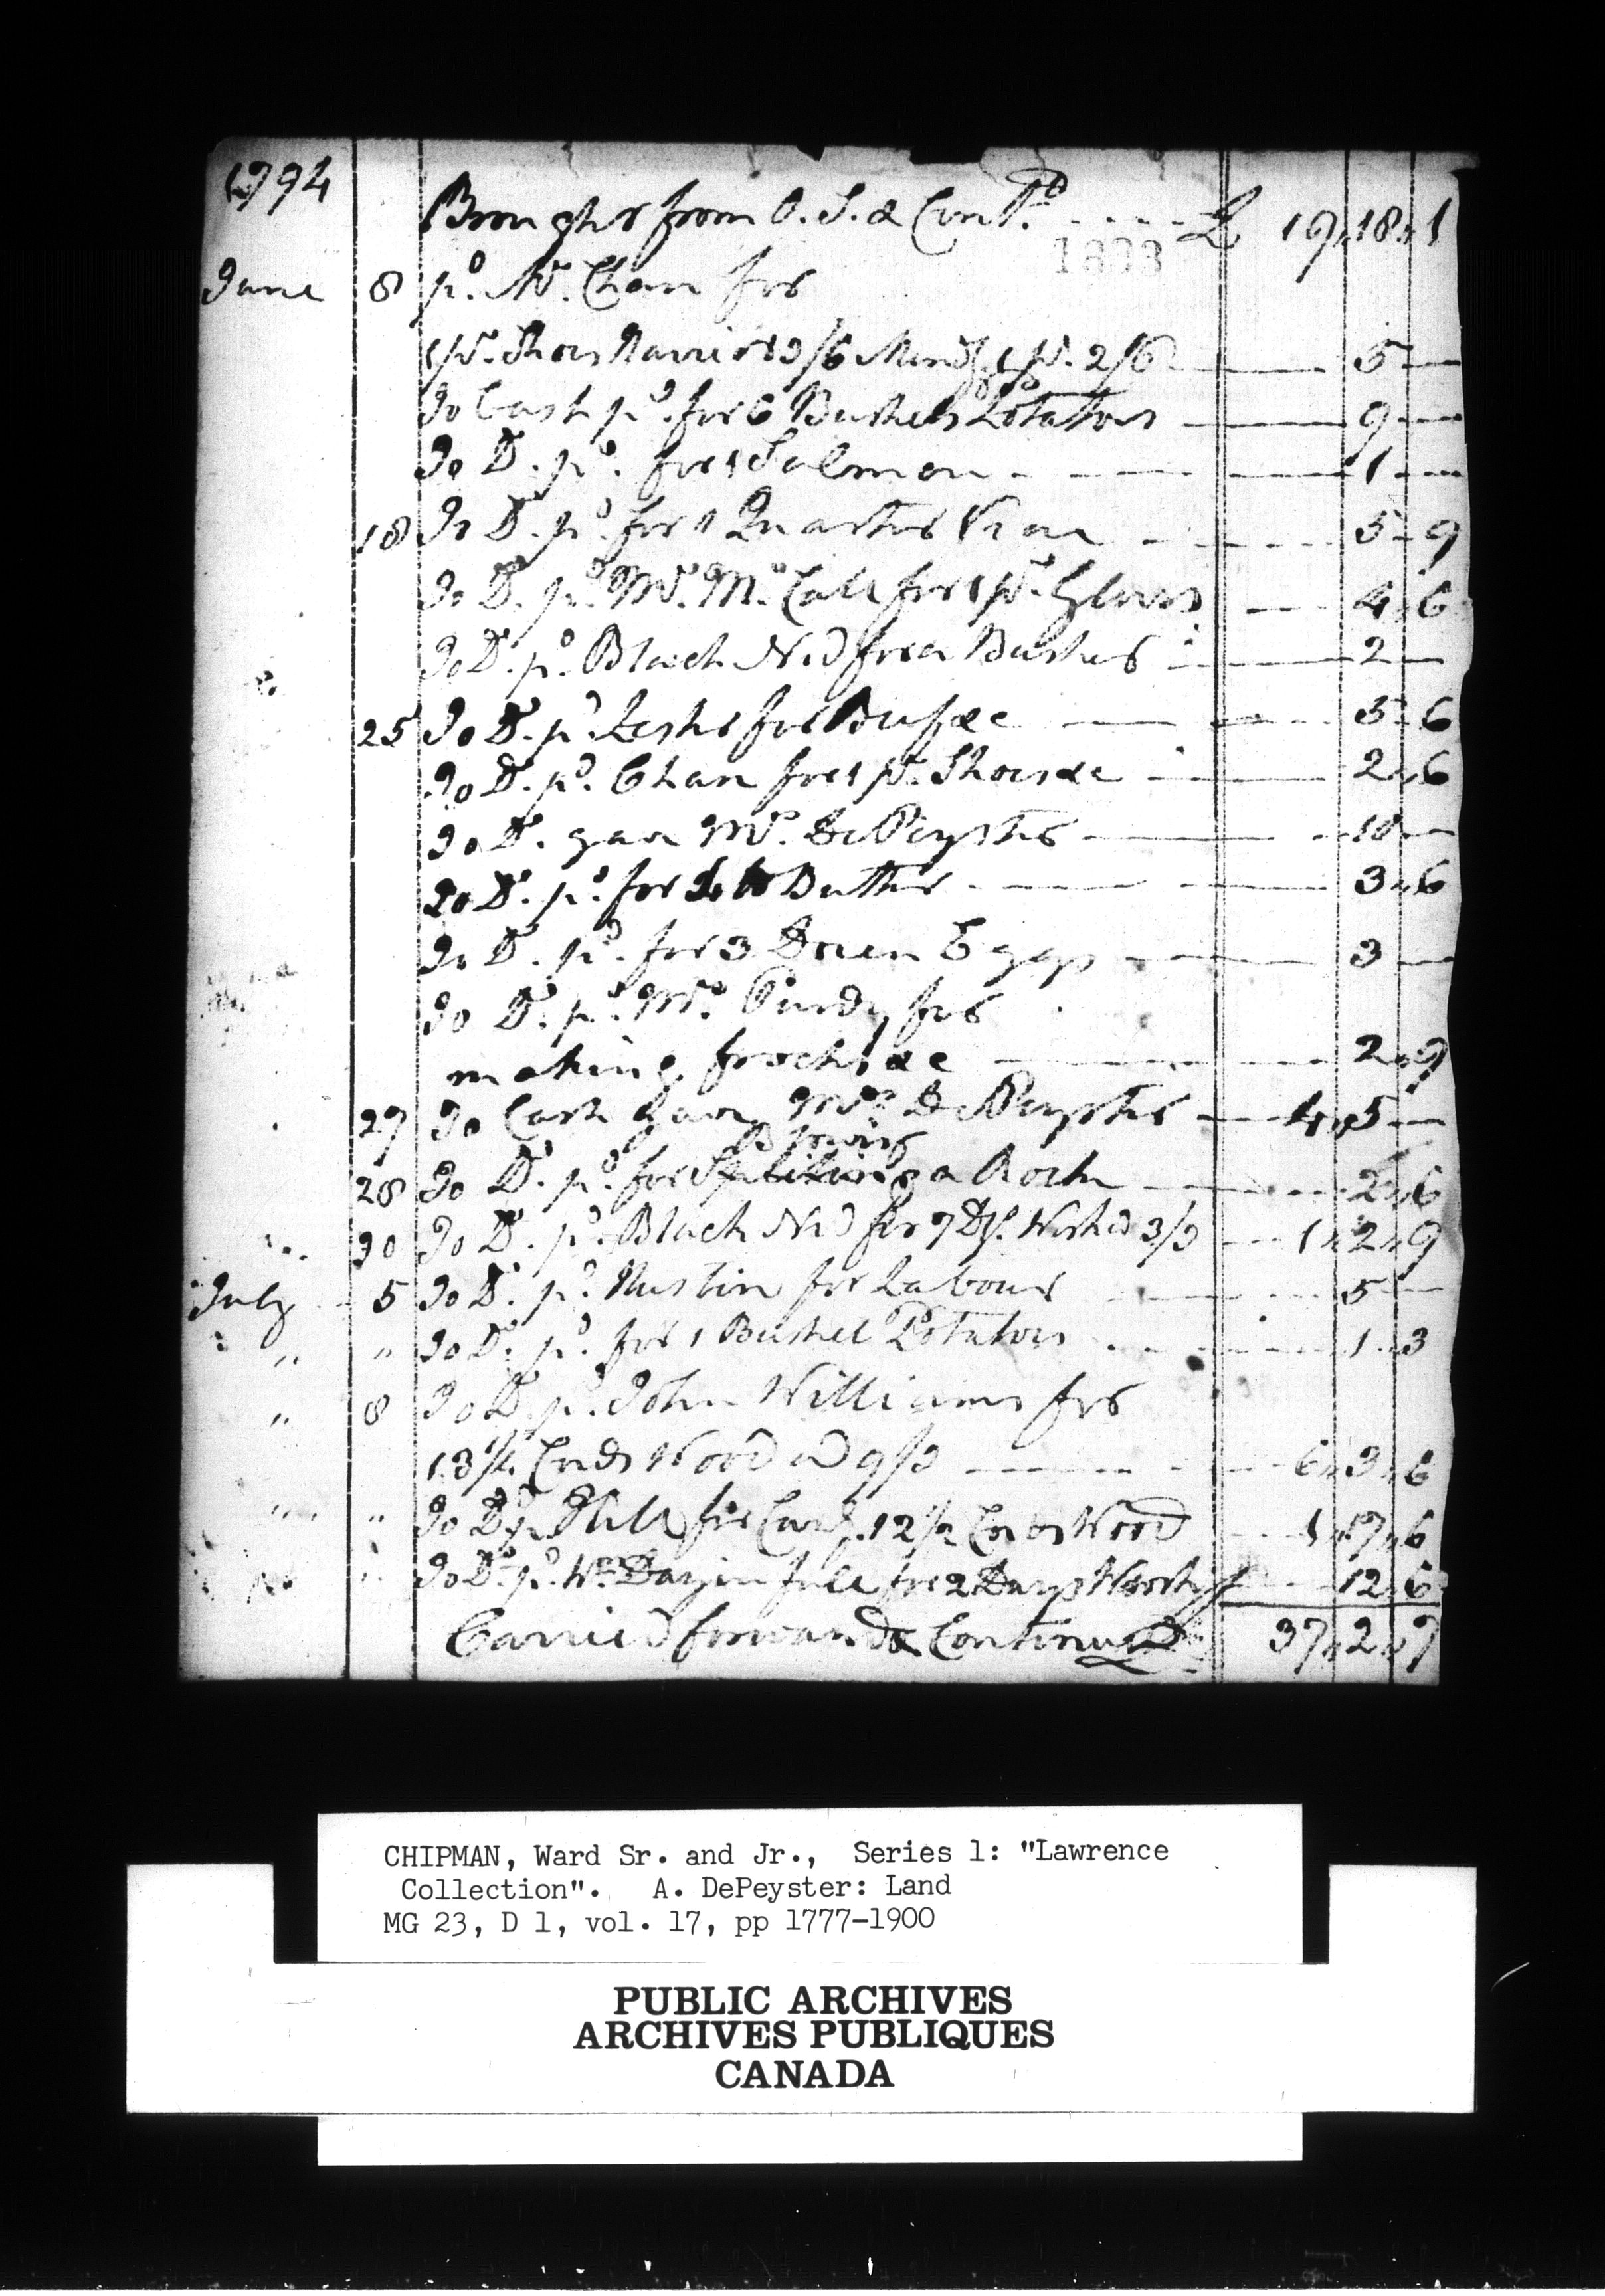 1794
Brought from O. S. & Cont.d - - - - £ 19 " 18 " 1
1833
June 8 p.d Mr. Chan for
1 pr. Shoes Harriot 2/6 Mend.g 1 pr. 2/6 5 —
To Cash p.d for 6 Bushels Potatoes 9 —
To D.o p.d for 1 Salmon 1 —
18 To D.o p.d for 1 Quarter Veal 5 " 9
To D.o p.d Mr. Mc. Call for 1 pr. Gloves 4 " 6
To D.o p.d Black Ned for a Bushel 2 —
25 To D.o p.d Lester for Beef &c 5 " 6
To D.o p.d Chan for 1 pr. Shoes &c 2 " 6
To D.o gave Mrs. DePeyster 10 —
To D.o p.d for lb Butter 3 " 6
To D.o p.d for 3 Dozen Eggs 3 —
To D.o p.d Mrs. Purdy for
making frocks &c 2 " 9
27 To Cash gave Mrs. DePeyster 4 " 5 —
Blowing
28 To D.o p.d for Splitting a Rock 2 " 6
30 To D.o p.d Black Ned for 7 Ds. Work @ 3/3 1 " 2 " 9
July 5 To D.o p.d Austin for Labour 5 —
" " To D.o p.d for 1 Bushel Potatoes 1 " 3
" 8 To D.o p.d John Williams for
13 1/4 Cords Wood @ 9/3 6 " 3 " 6
" " To D.o p.d Hill for Cart.g 12 1/2 Cords Wood 1 " 17 " 6
" To D.o p.d Wm. Day in full for 2 Days Work 12 " 6
Carried forward & Continued 37 " 2 " 7
CHIPMAN, Ward Sr. and Jr., Series 1: "Lawrence
Collection". A. DePeyster: Land
MG 23, D 1, vol. 17, pp 1777-1900
PUBLIC ARCHIVES
ARCHIVES PUBLIQUES
CANADA